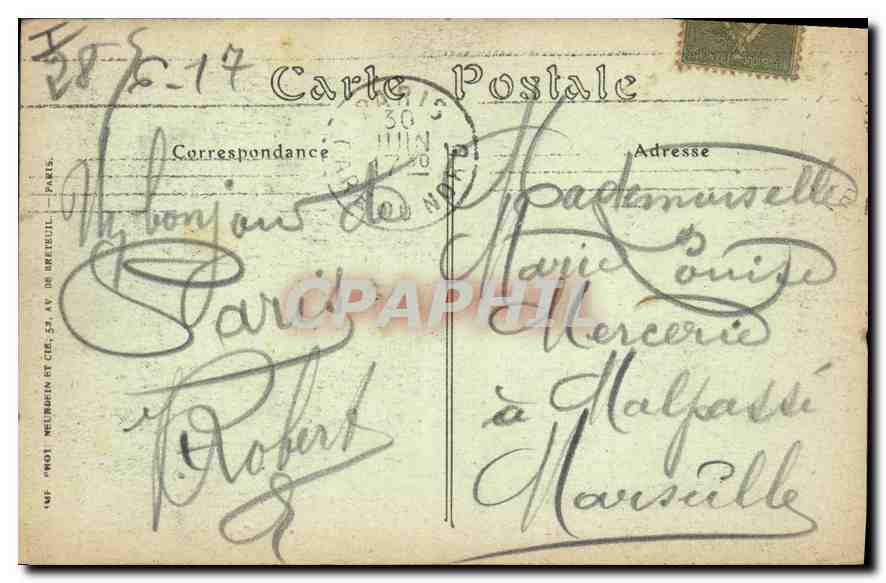 28-6-17
Carte Postale
Correspondance
Adresse
PARIS
30
JUIN
17
GARE NORD
bonjour de
Paris
Robert
Mademoiselle
Marie Louise
Mercerie
à Malpassé
Marseille
IMP. PHOT. NEURDEIN ET CIE, 52, AV. DE BRETEUIL. — PARIS.
CPAPHIL